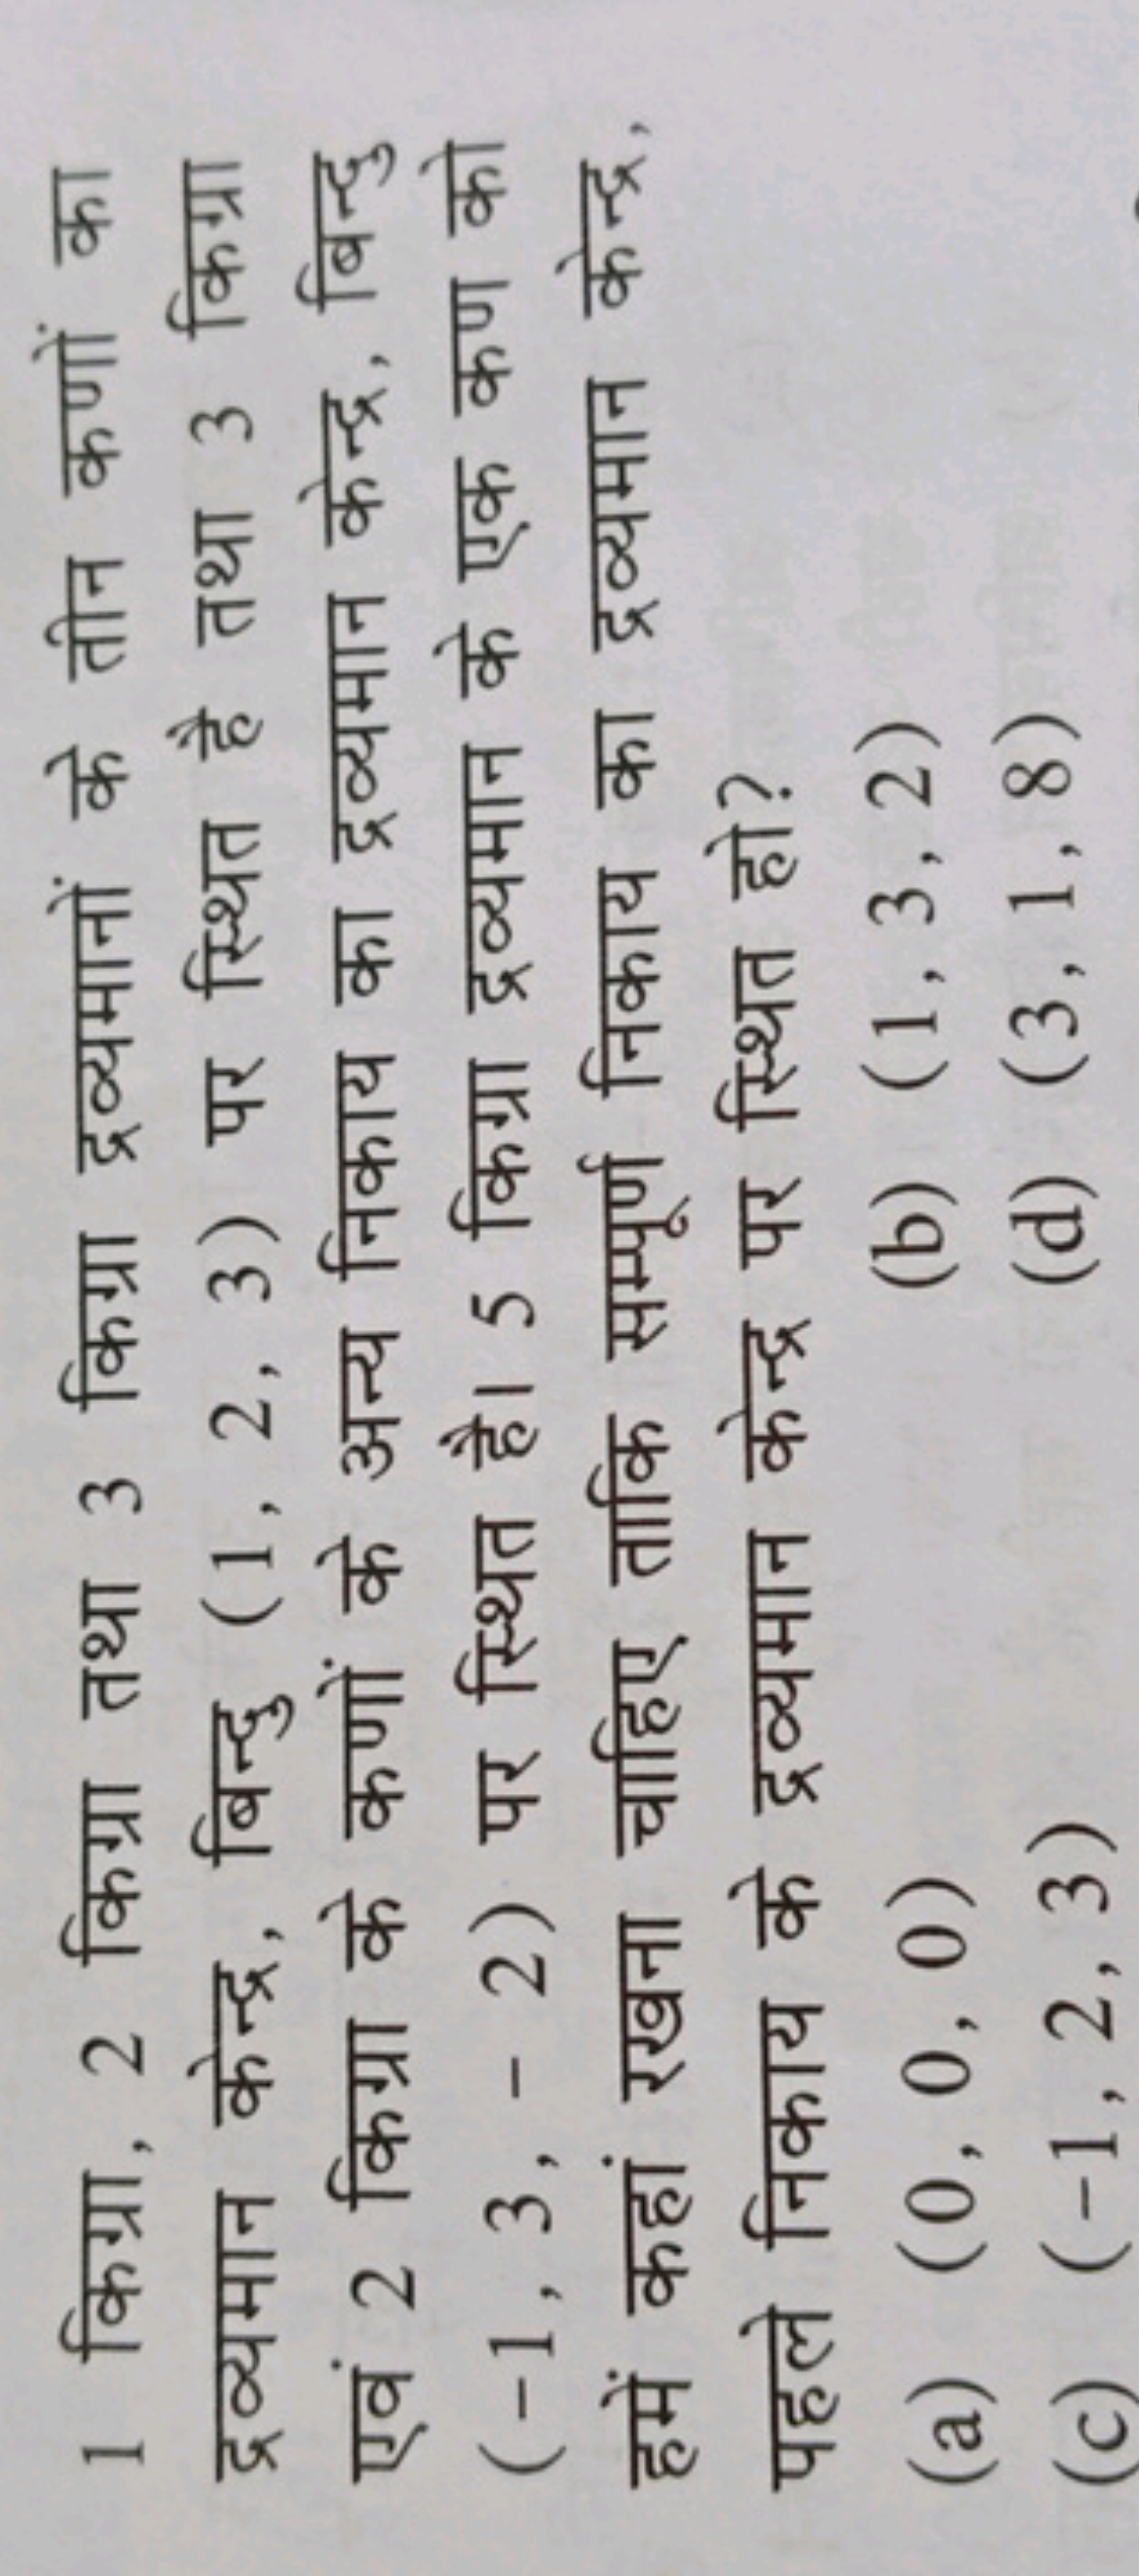 1 किग्रा, 2 किग्रा तथा 3 किग्रा द्रव्यमानों के तीन कणों का
द्रव्यमान केन्द्र, बिन्दु (1, 2, 3) पर स्थित है तथा 3 किग्रा
एवं 2 किग्रा के कणों के अन्य निकाय का द्रव्यमान केन्द्र, बिन्दु
(-1, 3, - 2) पर स्थित है। 5 किग्रा द्रव्यमान के एक कण को
हमें कहां रखना चाहिए ताकि सम्पूर्ण निकाय का द्रव्यमान केन्द्र,
पहले निकाय के द्रव्यमान केन्द्र पर स्थित हो?
(a) (0, 0, 0) (b) (1, 3, 2)
(c) (-1, 2, 3) (d) (3, 1, 8)